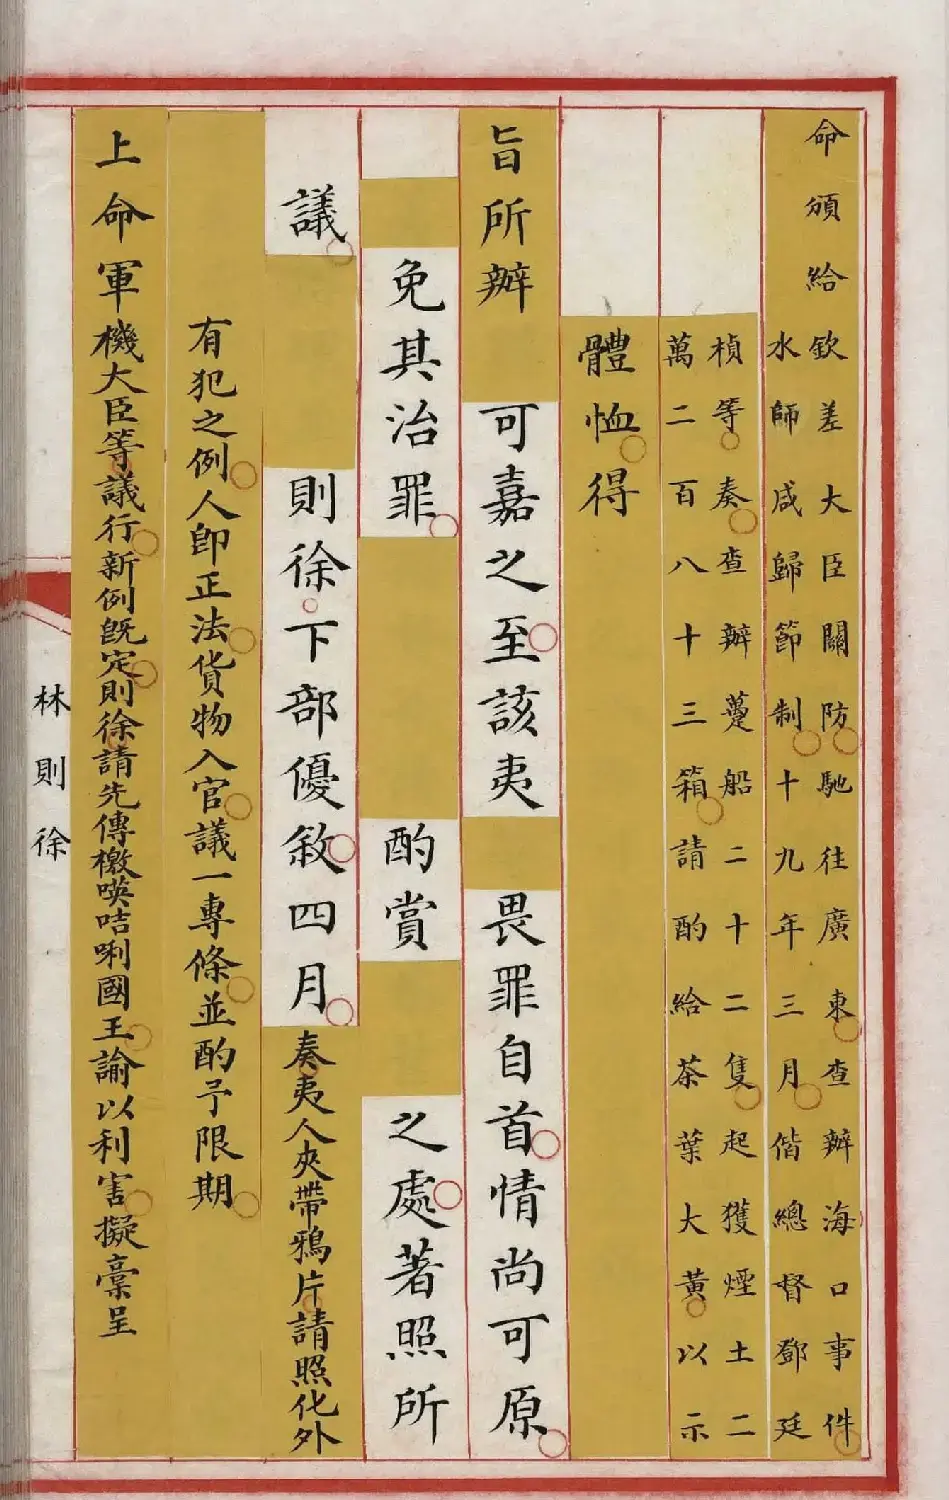 命頒給欽差大臣關防馳往廣東查辦海口事件
水師咸歸節制十九年三月偕總督鄧廷
楨等奏查辦躉船二十二隻起獲煙土二
萬二百八十三箱請酌給茶葉大黃以示
體恤得
旨所辦可嘉之至該夷畏罪自首情尚可原
免其治罪酌賞之處著照所
議則徐下部優敘四月奏夷人夾帶鴉片請照化外
有犯之例人卽正法貨物入官議一專條並酌予限期
上命軍機大臣等議行新例旣定則徐請先傳檄㖹咭唎國王諭以利害擬稾呈
林則徐